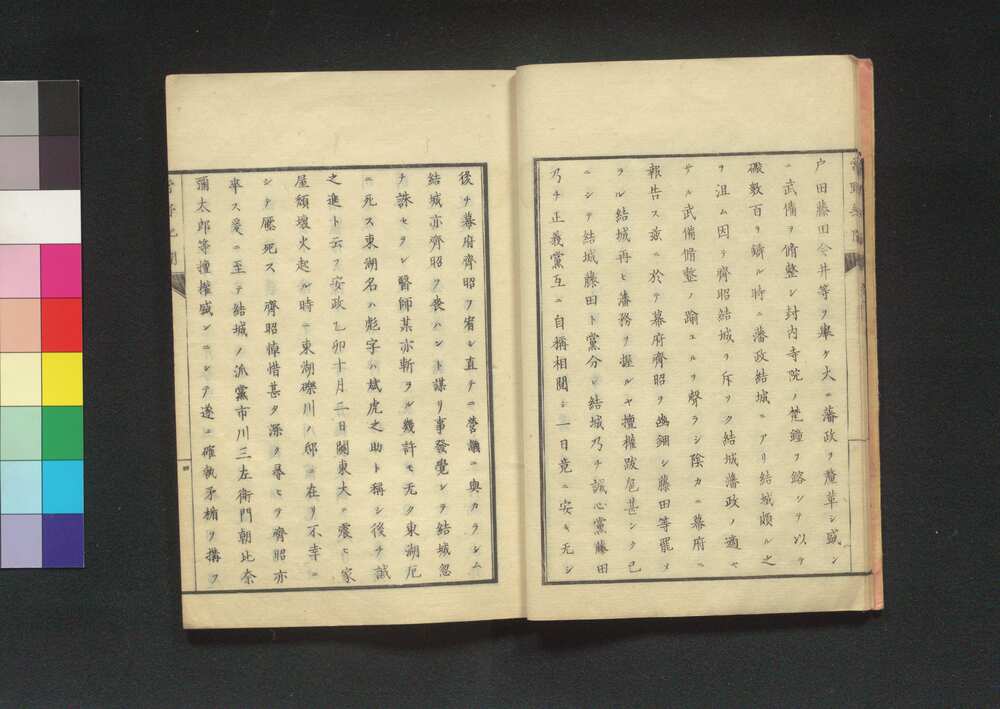 戸田藤田今井等ヲ擧ケ大ニ藩政ヲ釐革シ盛ン
ニ武備ヲ脩整シ封内寺院ノ梵鐘ヲ鎔シテ以テ
礟數百ヲ鑄ル時ニ藩政結城ニアリ結城頗ル之
ヲ沮ム因テ齊昭結城ヲ斥リク結城藩政ノ適セ
サル武備脩整ノ踰エルヲ聲ラシ陰カニ幕府ニ
報告ス玆ニ於テ幕府齊昭ヲ幽錮シ藤田等罷メ
ラル結城再ヒ藩務ヲ握ルヤ擅權跋扈甚シク已
ニシテ結城藤田ト黨分レ結城乃チ誠心黨藤田
乃チ正義黨互ニ自稱相鬩シ一日竟ニ安キ无シ
後チ幕府齊昭ヲ宥シ直チニ營議ニ與カラシム
結城亦齊昭ヲ喪ハント謀リ事發覺シテ結城忽
チ誅セラレ醫師某亦斬ラル幾許モ无ク東湖厄
ニ死ス東湖名ハ彪字ハ斌虎之助ト稱シ後チ誠
之進ト云フ安政乙卯十月二日關東大ニ震ヒ家
屋頽壞火起ル時ニ東湖礫川ノ邸ニ在リ不幸ニ
シテ壓死ス 齊昭悼惜甚タ深ク尋ヒテ齊昭亦
率ス爰ニ至テ結城ノ派黨市川三左衛門朝比奈
彌太郎等擅權盛ンニシテ遂ニ確執矛楯ヲ搆フ